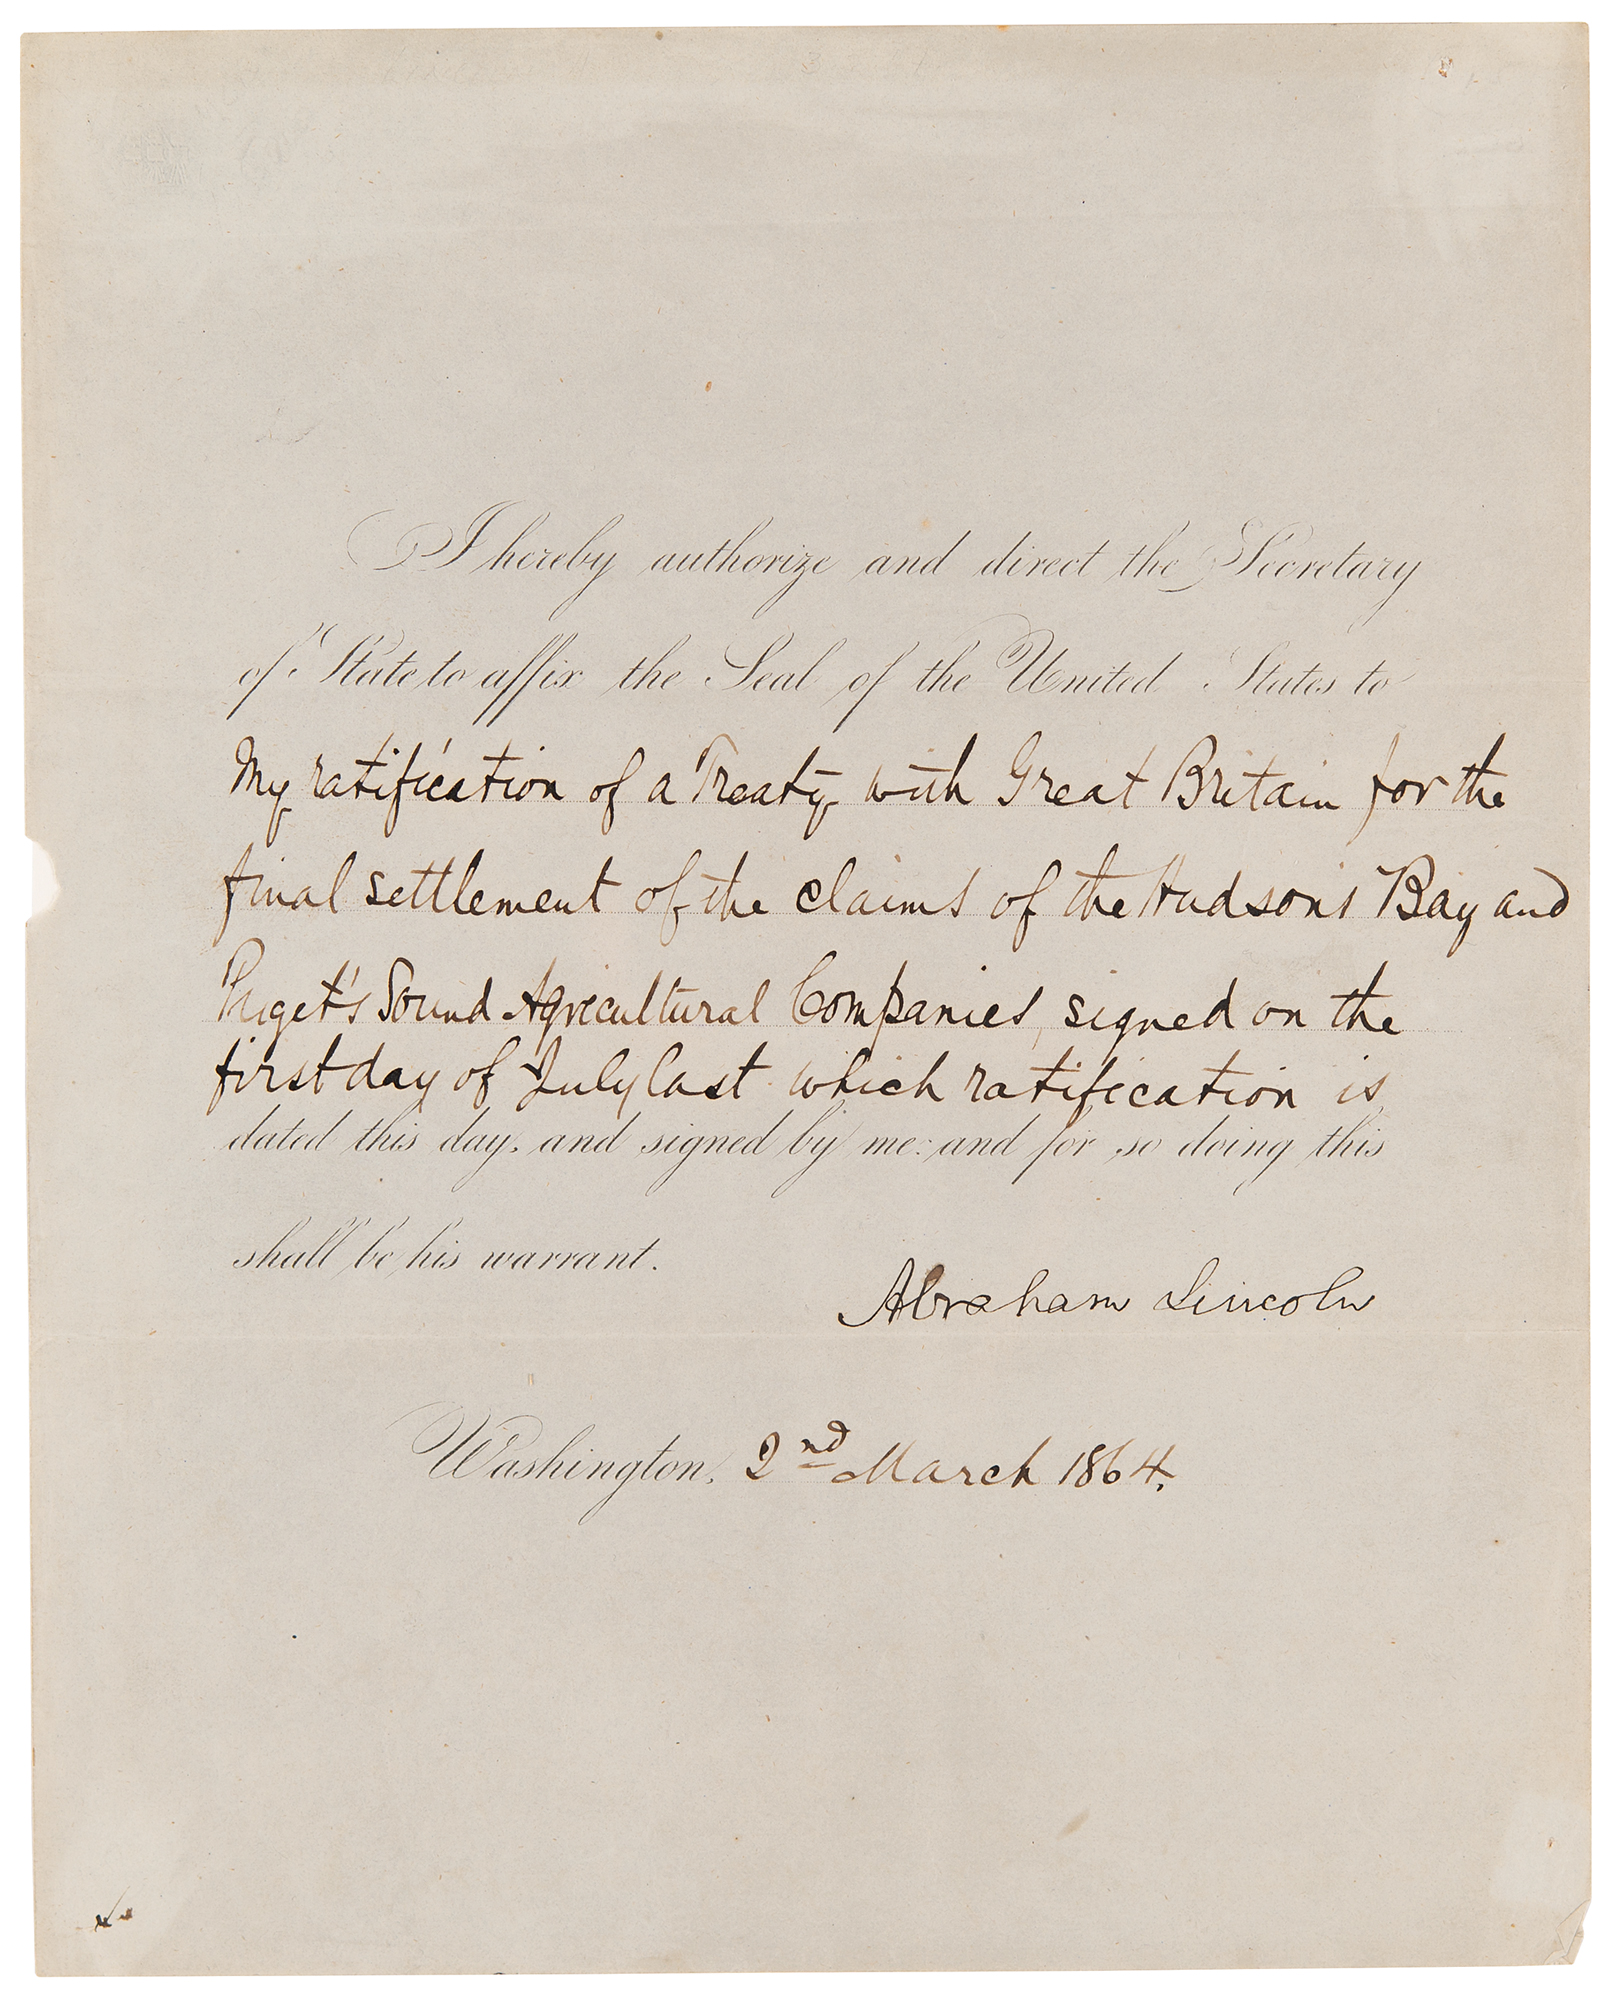 I hereby authorize and direct the Secretary
of State to affix the Seal of the United States to
My ratification of a Treaty with Great Britain for the
final settlement of the claims of the Hudson's Bay and
Puget's Sound Agricultural Companies, signed on the
first day of July last which ratification is
dated this day, and signed by me: and for so doing this
shall be his warrant.
Abraham Lincoln
Washington, 2nd March 1864.